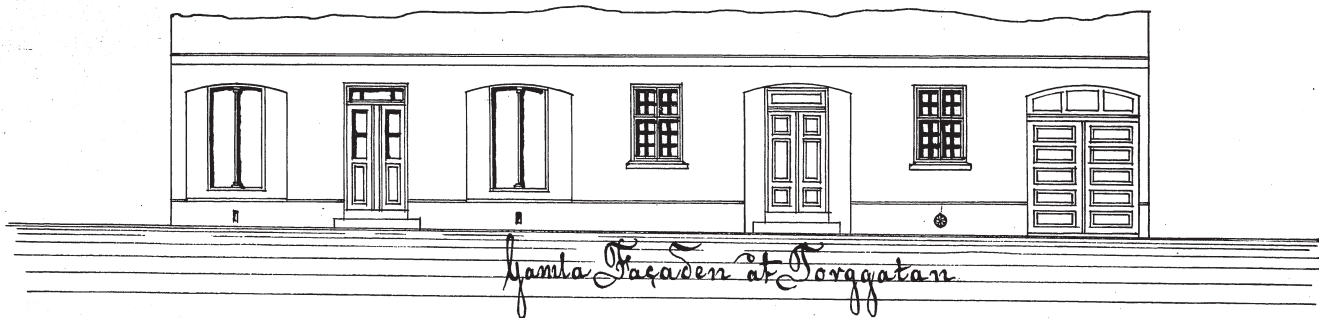 Gamla Façaden åt Torggatan